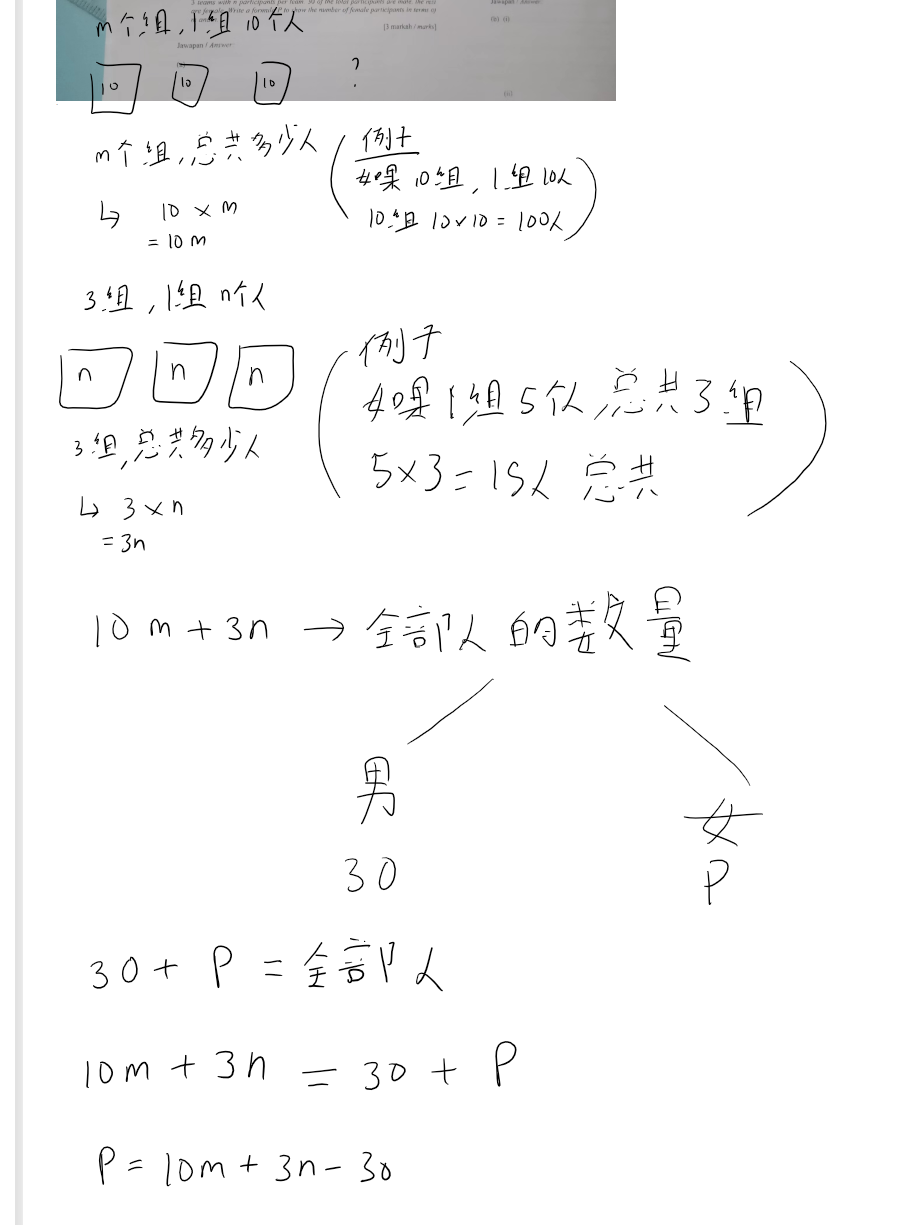 3 teams with n participants per team. 30 of the total participants are male. The rest
are female. Write a formula P to show the number of female participants in terms of
m and n.
[3 markah / marks]
Jawapan / Answer:
Jawapan / Answer:
(b) (i)
(ii)
m个组,1组10个人
10 10 10 ?
m个组,总共多少人
↳ 10 × m
= 10m
(例子
如果10组,1组10人
10组 10×10=100人)
3组,1组n个人
n n n
3组,总共多少人
↳ 3 × n
= 3n
(例子
如果1组5个人总共3组
5×3=15人 总共)
10m + 3n → 全部人的数量
男 女
30 P
30 + P = 全部人
10m + 3n = 30 + P
P = 10m + 3n - 30